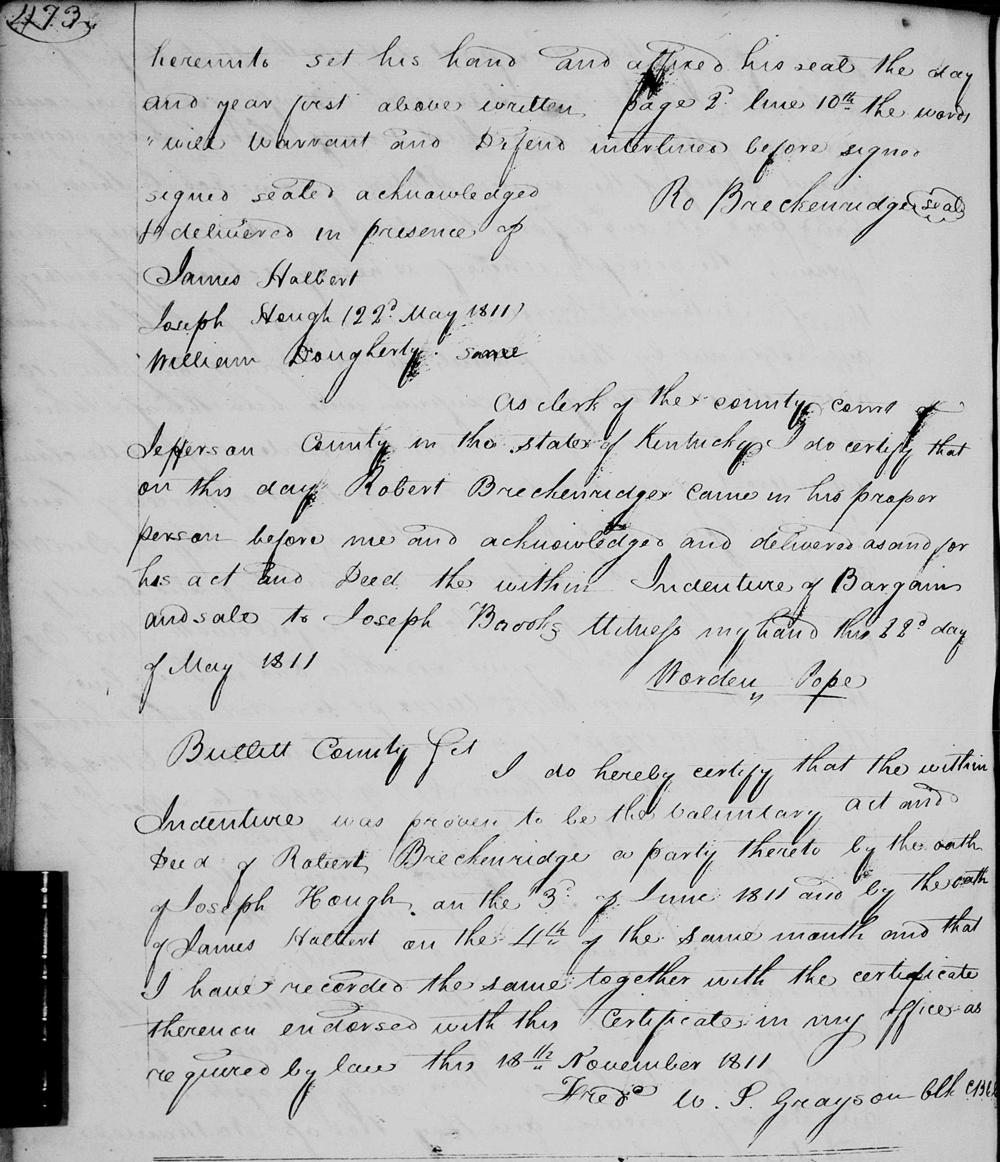 473
hereunto set his hand and affixed his seal the day
and year first above written page 2d line 10th the words
"will warrant and Defend interlined before signed
signed sealed acknowledged
Ro Breckenridge seal
& delivered in presence of
James Halbert
Joseph Hough (22d May 1811)
William Dougherty. same
As clerk of the county court of
Jefferson County in the state of Kentucky I do certify that
on this day Robert Breckenridge came in his proper
person before me and acknowledged and delivered as and for
his act and Deed the within Indenture of Bargain
and sale to Joseph Brooks Witness my hand this 22d day
of May 1811
Worden Pope
Bullitt County Sct
I do hereby certify that the within
Indenture was proven to be the voluntary act and
Deed of Robert Breckenridge a party thereto by the oath
of Joseph Hough on the 3d of June 1811 and by the oath
of James Halbert on the 4th of the same month and that
I have recorded the same together with the certificate
thereon endorsed with this Certificate in my office as
required by law this 18th November 1811
Fredc W. S. Grayson Clk